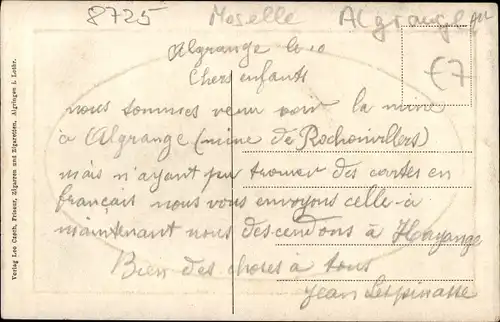 8725 Moselle Algrange
€7
Algrange le 10
Chers enfants
nous sommes venu voir la mine
à Algrange (mine de Rochonvillers)
mais n'ayant pu trouver des cartes en
français nous vous envoyons celle-à
maintenant nous descendons à Hayange
Bien des choses à tous
Jean Lespinasse
Verlag Leo Czech, Friseur, Zigarren und Zigaretten, Algringen i. Lothr.